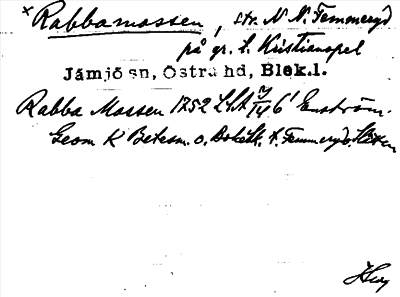 × Rabbamossen, str. N N. Femmeryd
på gr. t. Kristianopel
Jämjö sn, Östra hd, Blek.l.
Rabba Mossen 1752 6' Enström.
Geom K Betesm. o. t. Femmeryd